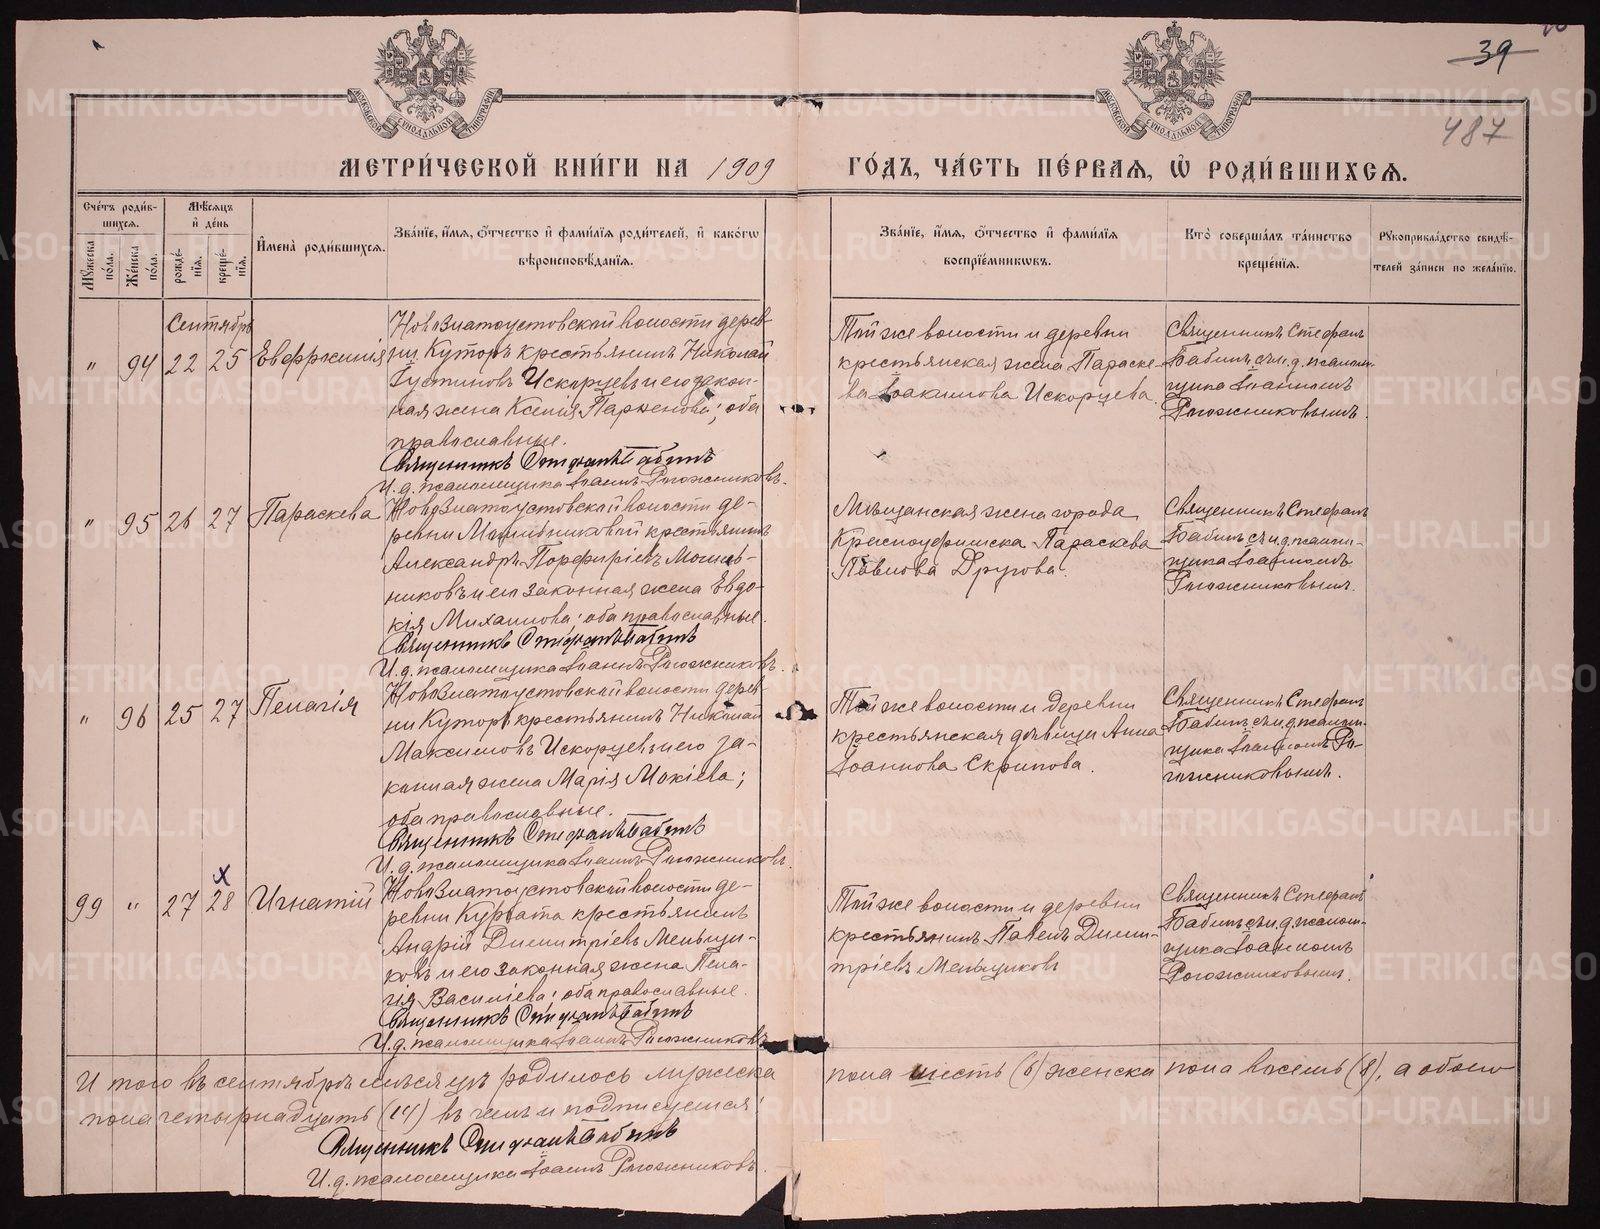 39
487
МОСКОВСКОЙ СѴНОДАЛЬНОЙ ТИПОГРАФІИ
МОСКОВСКОЙ СѴНОДАЛЬНОЙ ТИПОГРАФІИ
МЕТРИ́ЧЕСКОЙ КНИ́ГИ НА 1909 ГО́ДЪ, ЧА́СТЬ ПЕ́РВАѦ, Ѽ РОДИ́ВШИХСѦ.
Сче́тъ роди́вшихсѧ.
Мꙋ́жеска по́ла.
Же́нска по́ла.
Мѣ́сѧцъ и҆ де́нь
рожде́нїѧ.
креще́нїѧ.
И҆мена̀ роди́вшихсѧ.
Зва́нїе, и҆́мѧ, ѻ҆́тчество и҆ фами́лїѧ роди́телей, и҆ како́гѡ
вѣроисповѣ́данїѧ.
Зва́нїе, и҆́мѧ, ѻ҆́тчество и҆ фами́лїѧ
воспрїе́мникѡвъ.
Кто̀ соверша́лъ та́инство
креще́нїѧ.
Рꙋкоприкла́дство свидѣ́-
телей за́писи по жела́нїю.
Сентябрь
" 94 22 25 Евфросинія
Новозлатоустовской волости дерев-
ни Куторъ крестьянинъ Николай
Густиновъ Искорцевъ и его закон-
ная жена Ксенія Парѳенова; оба
православные.
Священникъ Стефанъ Бабинъ
И.д. псаломщика Іоаннъ Рогожниковъ.
Той же волости и деревни
крестьянская жена Параске-
ва Іоакимова Искорцева.
Священникъ Стефанъ
Бабинъ съ и.д. псалом-
щика Іоанномъ
Рогожниковымъ.
" 95 26 27 Параскева
Новозлатоустовской волости де-
ревни крестьянинъ
Александръ Порфиріевъ
никовъ и его законная жена Евдо-
кія Михаилова; оба православные.
Священникъ Стефанъ Бабинъ
И.д. псаломщика Іоаннъ Рогожниковъ.
Мѣщанская жена города
Красноуфимска Параскева
Павлова Другова.
Священникъ Стефанъ
Бабинъ съ и.д. псалом-
щика Іоанномъ
Рогожниковымъ.
" 96 25 27 Пелагія
Новозлатоустовской волости дерев-
ни Куторъ крестьянинъ Николай
Максимовъ Искорцевъ и его за-
конная жена Марія Мокіева;
оба православные.
Священникъ Стефанъ Бабинъ
И.д. псаломщика Іоаннъ Рогожниковъ.
Той же волости и деревни
крестьянская дѣвица Анна
Іоаннова Скрипова.
Священникъ Стефанъ
Бабинъ съ и.д. псалом-
щика Іоанномъ Ро-
гожниковымъ.
х
99 " 27 28 Игнатій
Новозлатоустовской волости де-
ревни Кургата крестьянинъ
Андрій Димитріевъ Мельщи-
ковъ и его законная жена Пела-
гія Василіева; оба православные.
Священникъ Стефанъ Бабинъ
И.д. псаломщика Іоаннъ Рогожниковъ
Той же волости и деревни
крестьянинъ Павелъ Дими-
тріевъ Мельщиковъ
Священникъ Стефанъ
Бабинъ съ и.д. псалом-
щика Іоанномъ
Рогожниковымъ.
И того въ сентябрѣ мѣсяцѣ родилось мужеска пола шесть (6) женска пола восемь (8), а обоего
пола четырнадцать (14) въ чемъ и подписуемся:
Священникъ Стефанъ Бабинъ
И.д. псаломщика Іоаннъ Рогожниковъ.
METRIKI.GASO-URAL.RU